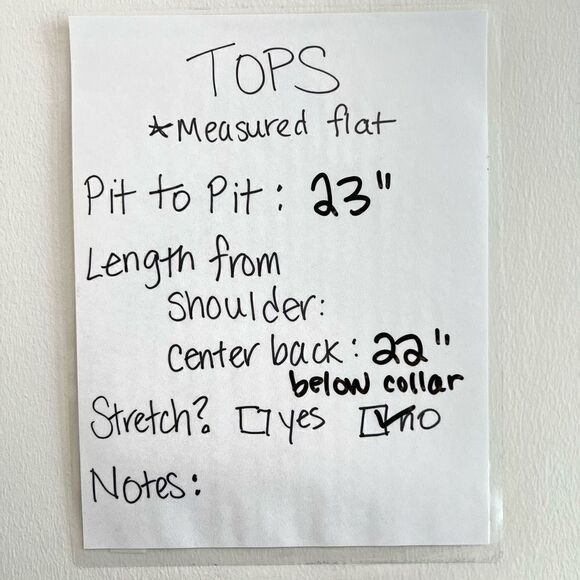 TOPS
*Measured flat
Pit to Pit: 23"
Length from
shoulder:
center back: 22"
below collar
Stretch? ☐ yes ☑ no
Notes: